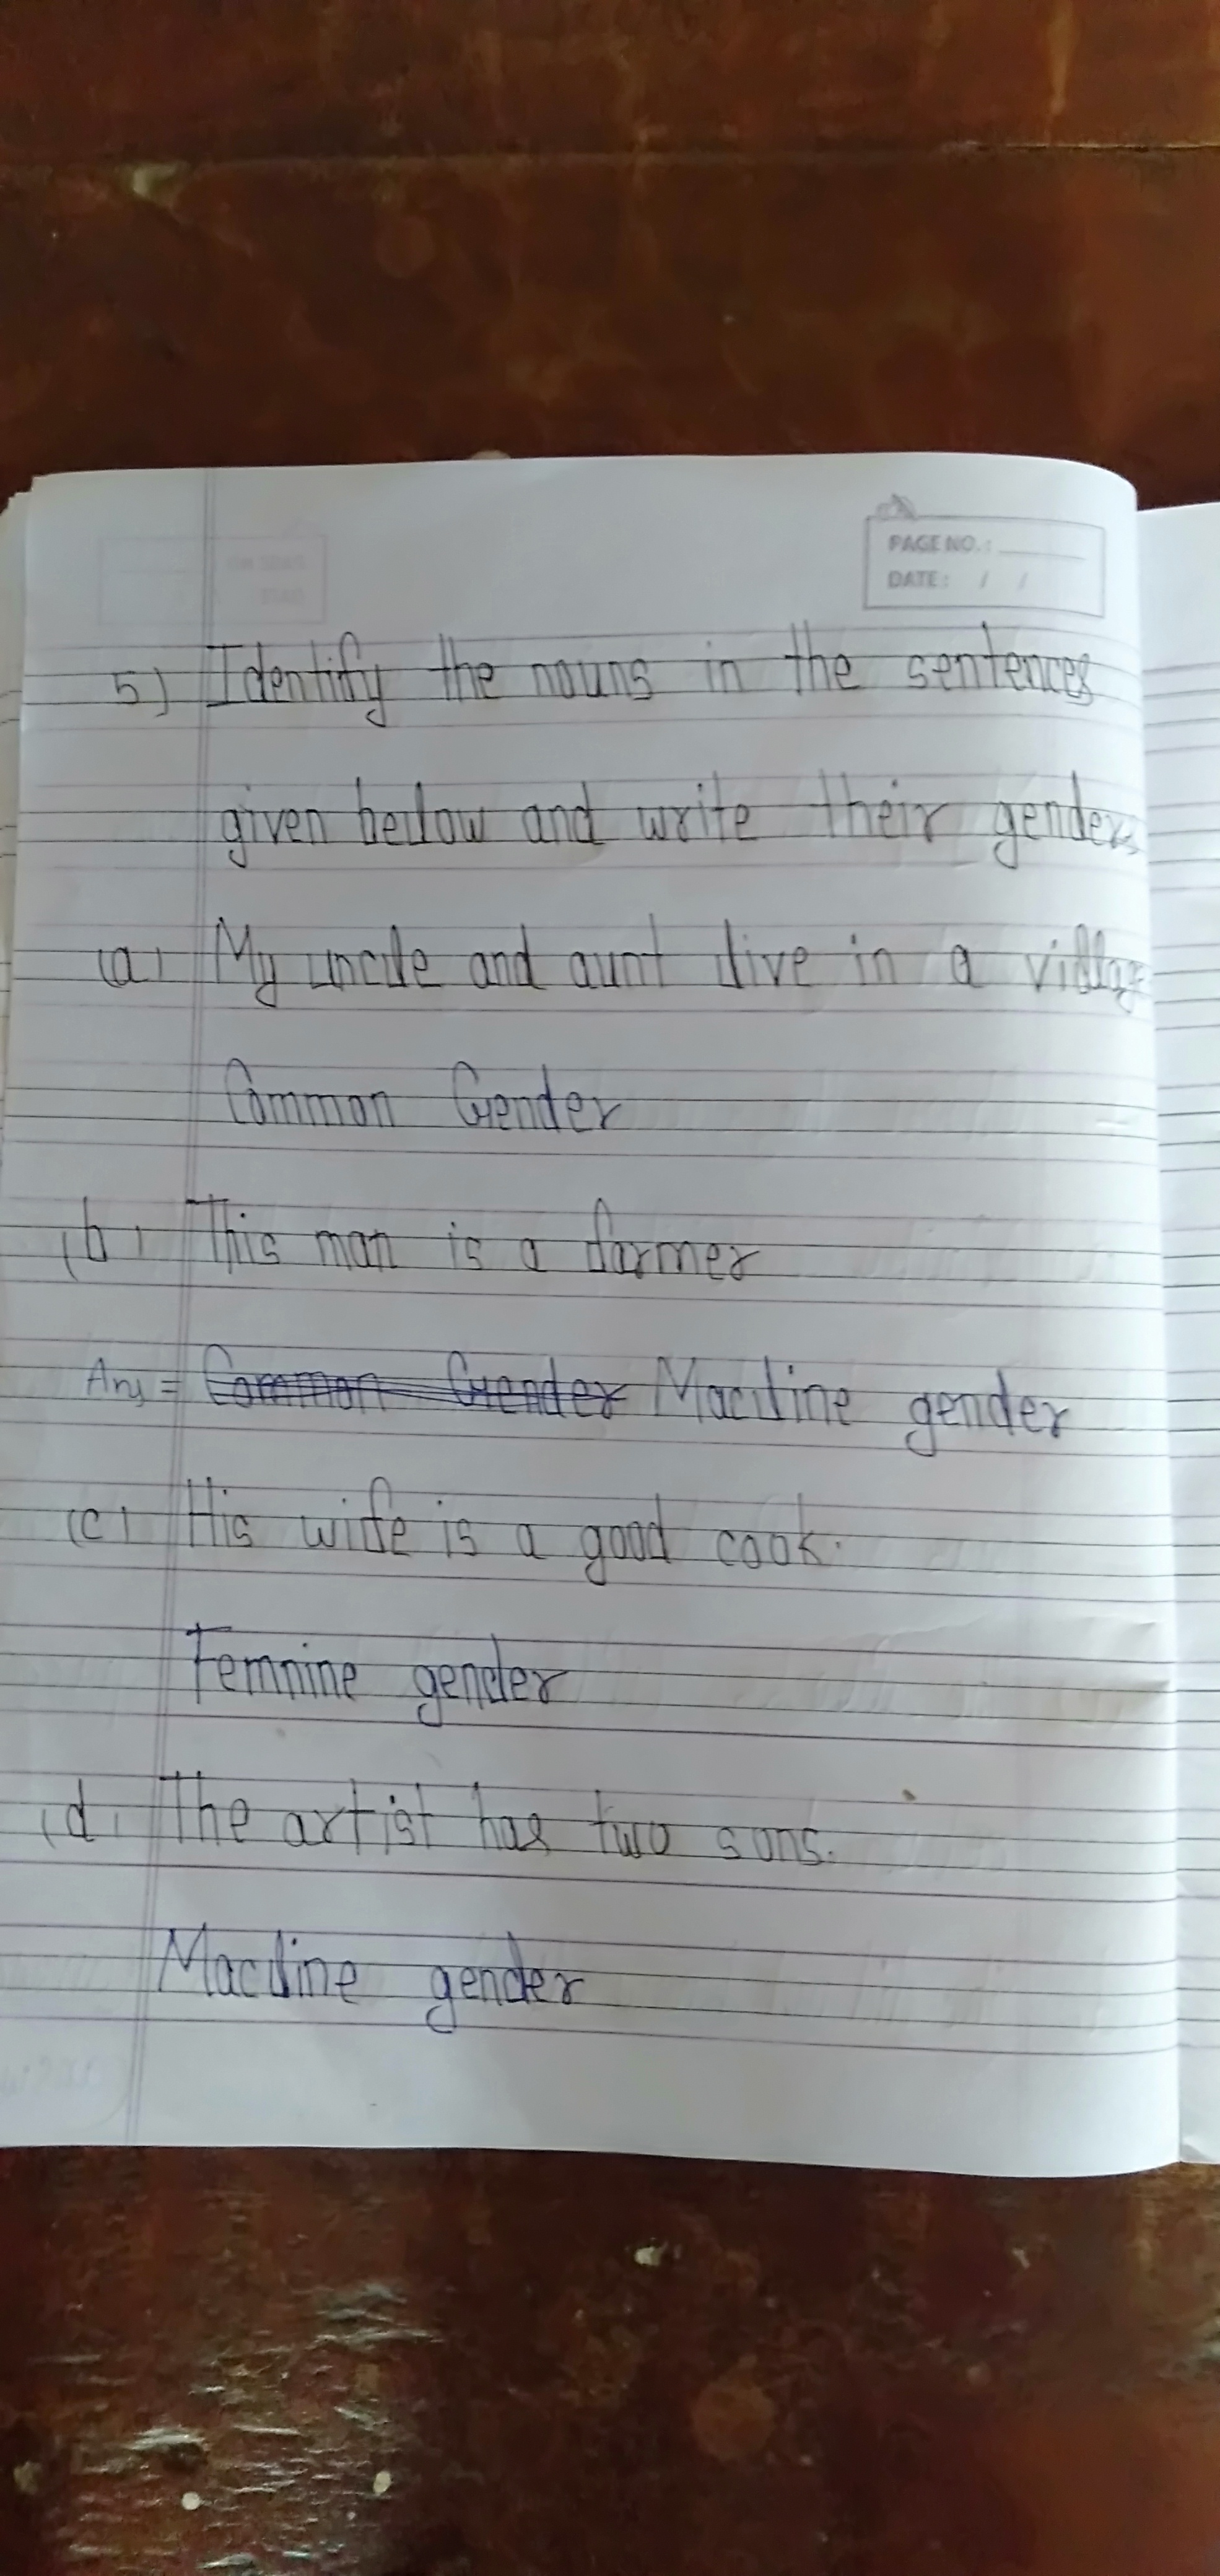 PAGE NO. :
DATE : / /
5) Identify the nouns in the sentences
given bellow and write their genders
(a) My uncle and aunt live in a village
Common Gender
(b) This man is a farmer
Ans = Common Gender Maculine gender
(c) His wife is a good cook.
Femnine gender
(d) The artist has two sons.
Maculine gender